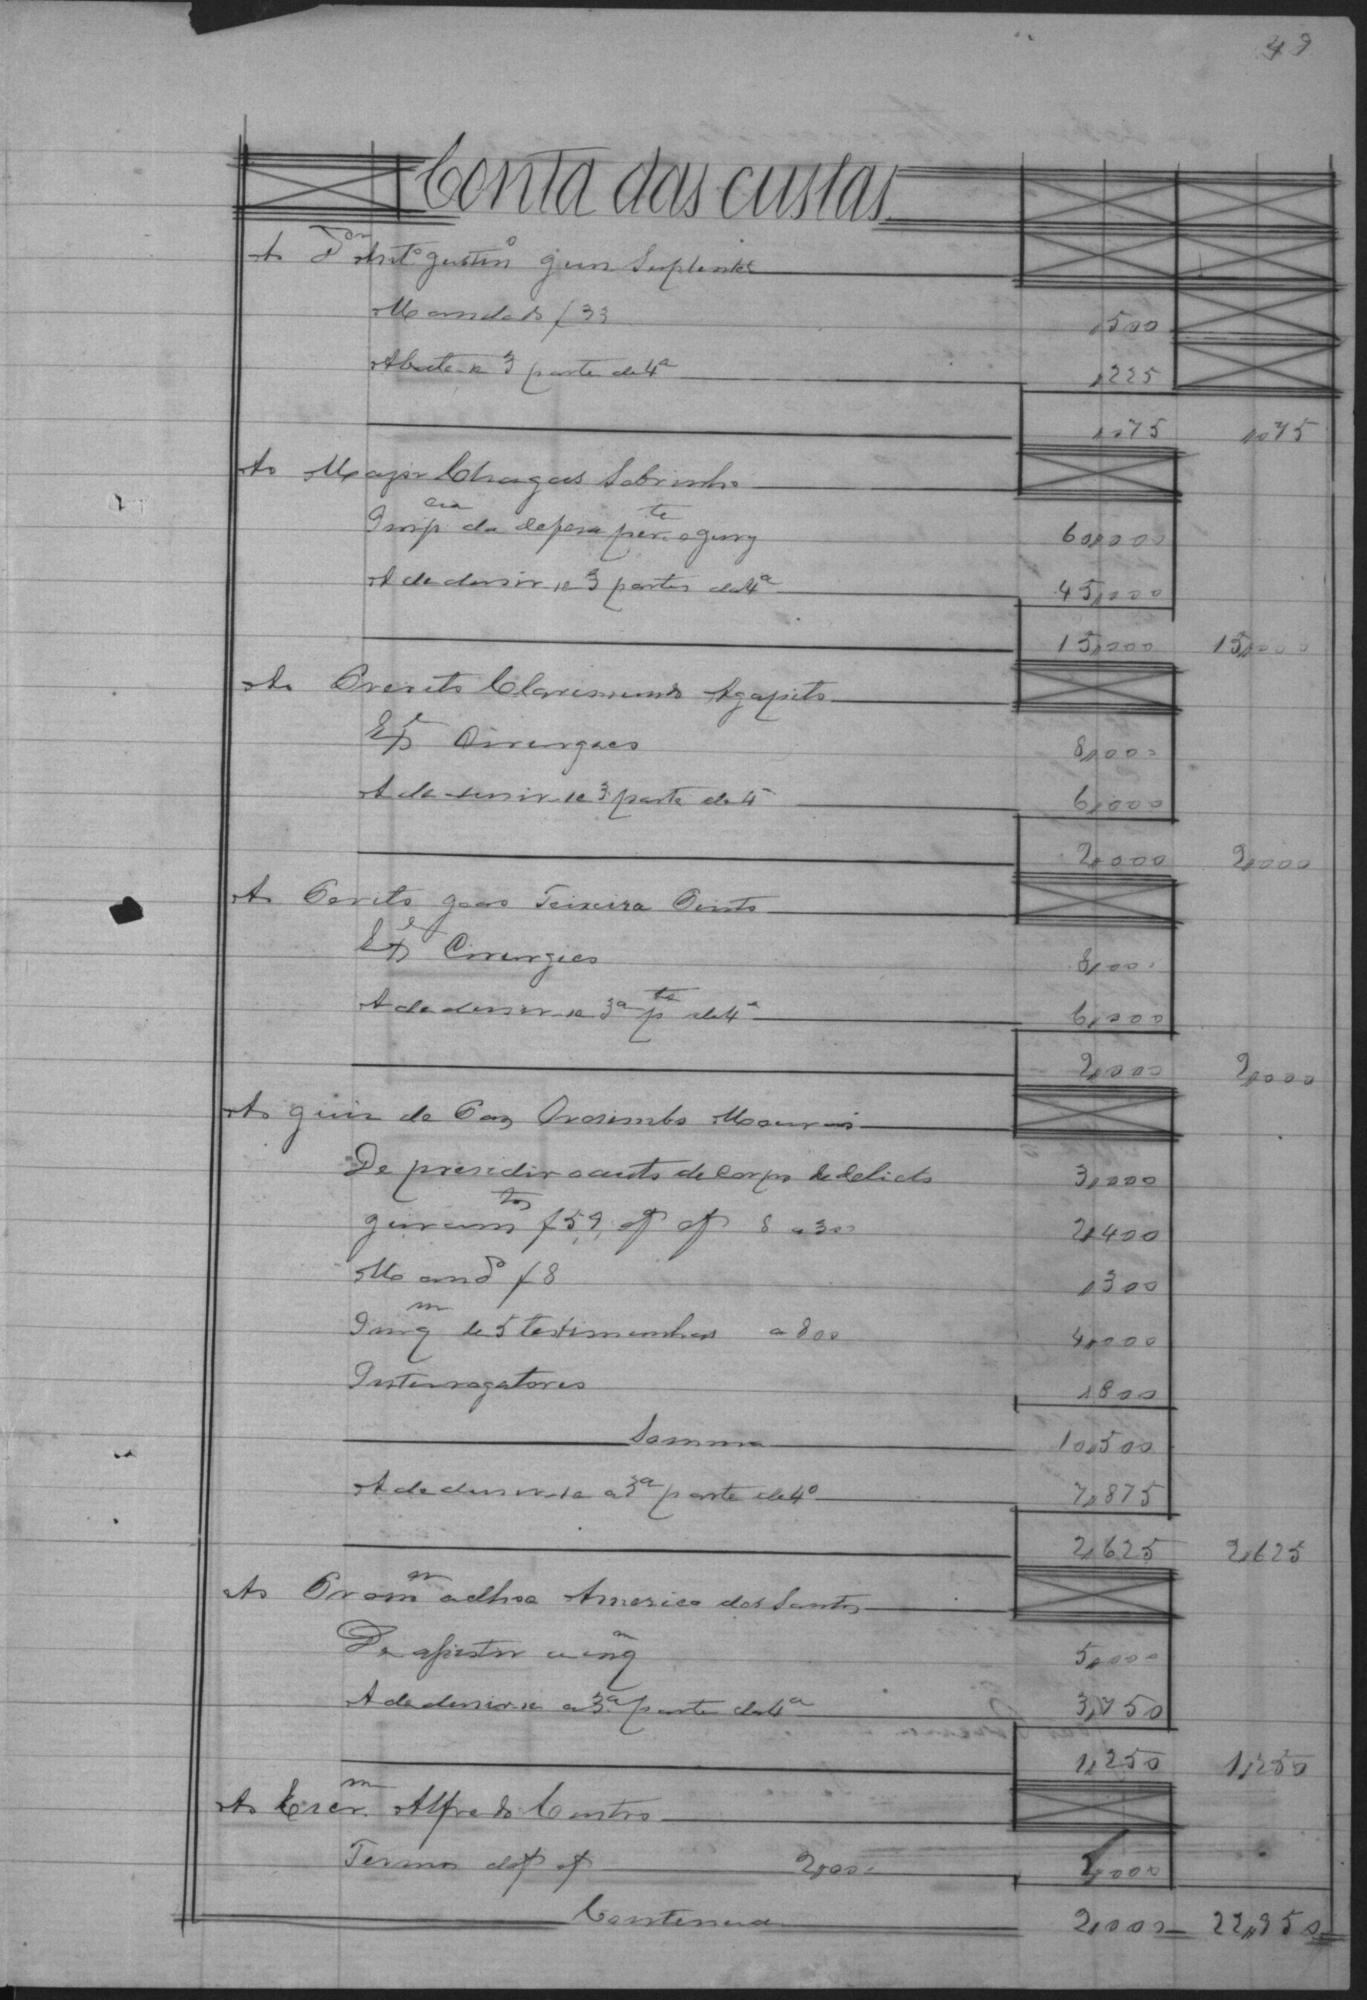 49
Conta das custas
Ao Juiz Suplente
Mandado f 33 ,500
Abate-se 3 parte de 4ª ,225
,,75 ,,75
Ao Major Chagas Sobrinho
da defesa per.te o jury 60,000
A dedusir-se 3 partes de 4ª 45,000
15,000 15,000
Ao Perito Clarismundo Agapito
8,000
A dedusir-se 3 parte de 4ª 6,000
2,000 2,000
Ao Perito João Teixeira Pinto
8,000
A dedusir-se 3ª p.te de 4ª 6,000
2,000 2,000
Ao Juiz de Paz Orosimbo
De presidir o auto de corpo de delicto 3,000
Juram.tos f 5, 9, 8 a 300 2,400
Mand.o f 8 ,300
Inq.m de 5 testimunhas a 800 4,000
Interrogatores ,800
Somma 10,500
A dedusir-se a 3ª parte de 4ª 7,875
2,625 2,625
Ao Prom adhoc Americo dos Santos
De asistir a inq.m 5,000
A dedusir-se a 3ª parte de 4ª 3,750
1,250 1,250
Ao Escr.m Alfredo Castro
Termos 2,000 2,000
Continua 2,000 22,950